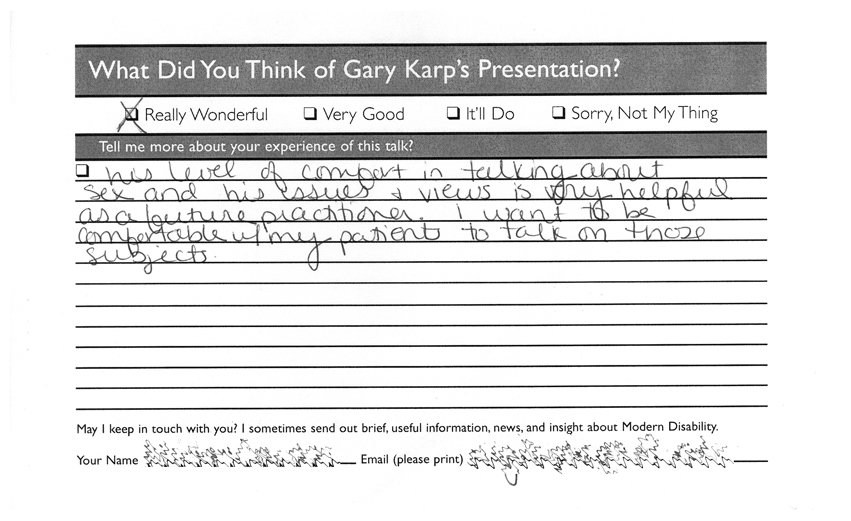 What Did You Think of Gary Karp's Presentation?
☒ Really Wonderful ❑ Very Good ❑ It'll Do ❑ Sorry, Not My Thing
Tell me more about your experience of this talk?
❑ his level of comfort in talking about
sex and his issues + views is very helpful
as a future practitioner. I want to be
comfortable w/ my patients to talk on those
subjects.
May I keep in touch with you? I sometimes send out brief, useful information, news, and insight about Modern Disability.
Your Name Email (please print)